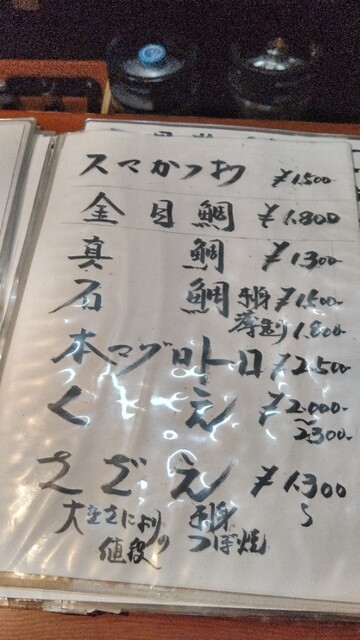 スマかつお ¥1.500-
金目鯛 ¥1.800
真鯛 ¥1.300-
石鯛 刺身 ¥1.500-
薄造り 1.800-
本マグロトロ ¥2.500-
くえ ¥2.000-
~
2.300-
さざえ ¥1.300
~
大きさにより 刺身
値段 つぼ焼